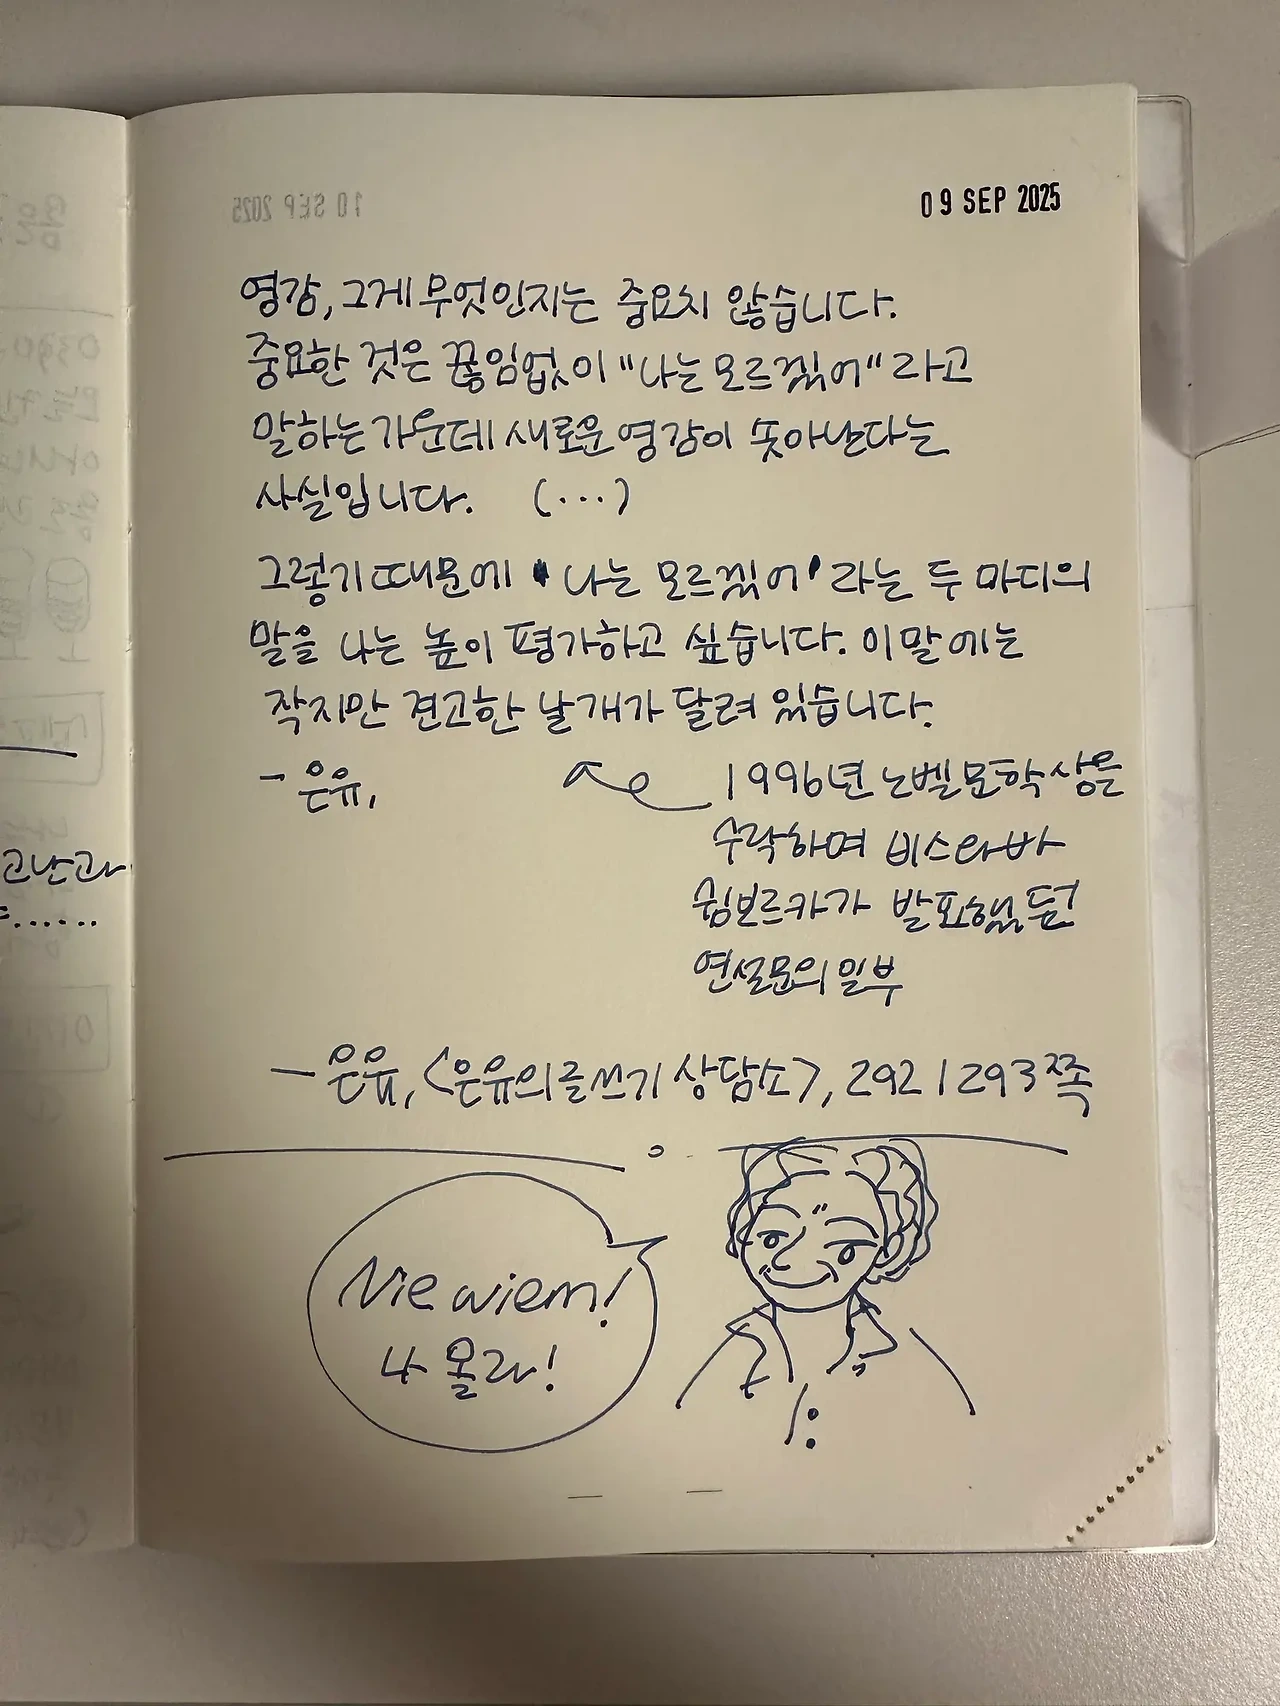 09 SEP 2025
10 SEP 2025
영감, 그게 무엇인지는 중요치 않습니다.
중요한 것은 끊임없이 "나는 모르겠어"라고
말하는 가운데 새로운 영감이 솟아난다는
사실입니다. (...)
그렇기 때문에 '나는 모르겠어'라는 두 마디의
말을 나는 높이 평가하고 싶습니다. 이 말에는
작지만 견고한 날개가 달려 있습니다.
- 은유,
1996년 노벨문학상을
수락하며 비스와바
쉼보르카가 발표했던
연설문의 일부
- 은유, <은유의 글쓰기 상담소>, 292 | 293쪽
Nie wiem!
나 몰라!
고난과
......